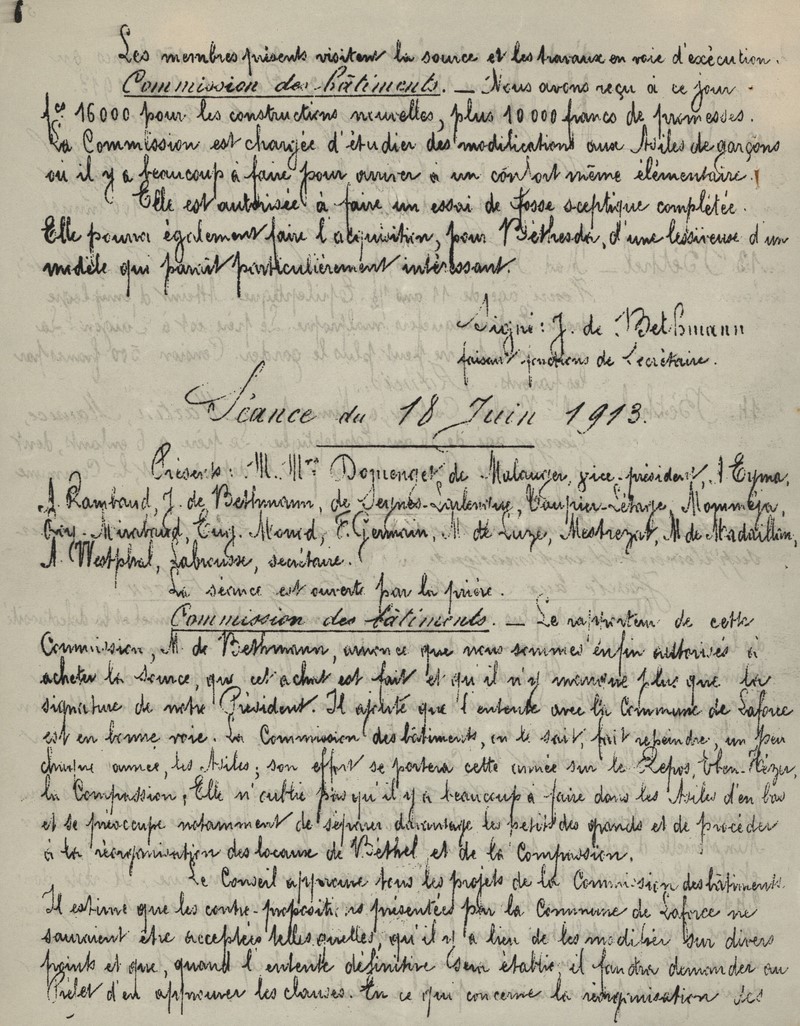 Les membres présents visitent la source et les travaux en voie d'exécution.
Commission des bâtiments. — Nous avons reçu à ce jour
fcs 16000 pour les constructions nouvelles, plus 10 000 francs de promesses.
La Commission est chargée d'étudier des modifications aux Asiles de garçons
où il y a beaucoup à faire pour arriver à un confort même élémentaire.
Elle est autorisée à faire un essai de fosse sceptique complétée.
Elle pourra également faire l'acquisition, pour Béthesda, d'une lessiveuse d'un
modèle qui paraît particulièrement intéressant.
Signé: J. de Bethmann
faisant fonctions de Secrétaire.
Séance du 18 Juin 1913.
Présents: M. Mrs Domenget de Malauger, vice-président, Eyma,
A. Rambaud, J. de Bethmann, de Seynes, Vaurier-Létarge, Momméja,
Mirabaud, Eug. Monod, F. Germain, M. de Luze, Mestrezat, M. de Madaillan,
A. Westphal, Labrousse, secrétaire.
La séance est ouverte par la prière.
Commission des bâtiments. — Le rapporteur de cette
Commission, M. de Bethmann, annonce que nous sommes enfin autorisés à
acheter la source, que cet achat est fait et qu'il n'y manque plus que la
signature de notre Président. Il ajoute que l'entente avec la Commune de Laforce
est en bonne voie. La Commission des bâtiments, on le sait, fait repeindre, un peu
chaque année, les Asiles; son effort se portera cette année sur le Repos, Eben-Hézer,
la Compassion; Elle n'oublie pas qu'il y a beaucoup à faire dans les Asiles d'en bas
et se préoccupe notamment de séparer davantage les petits des grands et de procéder
à la réorganisation des locaux de Béthel et de la Compassion.
Le Conseil approuve tous les projets de la Commission des bâtiments.
Il estime que les contre-propositions présentées par la Commune de Laforce ne
sauraient être acceptées telles quelles, qu'il y a lieu de les modifier sur divers
points et que, quand l'entente définitive sera établie, il faudra demander au
Préfet d'en approuver les clauses. En ce qui concerne la réorganisation des